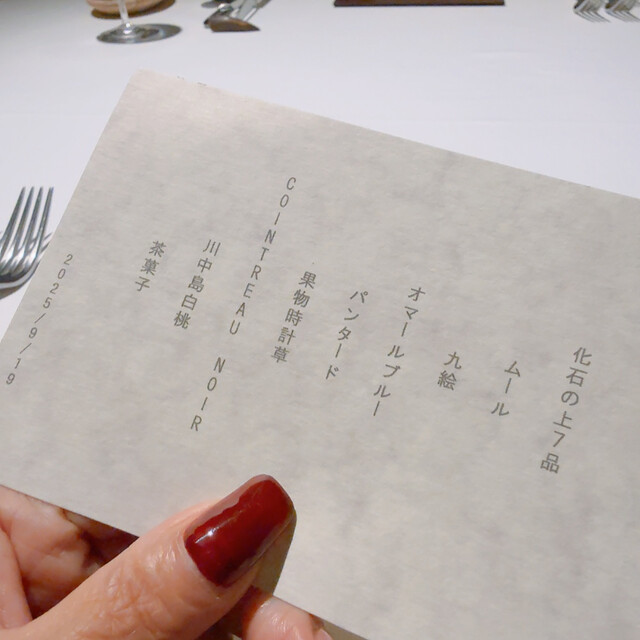 化石の上7品
ムール
九絵
オマールブルー
パンタード
果物時計草
COINTREAU NOIR
川中島白桃
茶菓子
2025/9/19